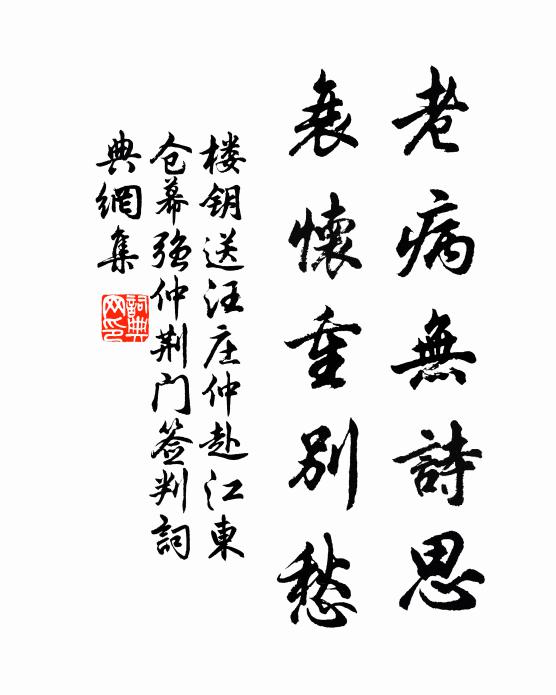 老病無詩思
衰懷重別愁
楼钥送汪庄仲赴江東
仓幕强仲荆门签判詞
典網集
詞典
网印